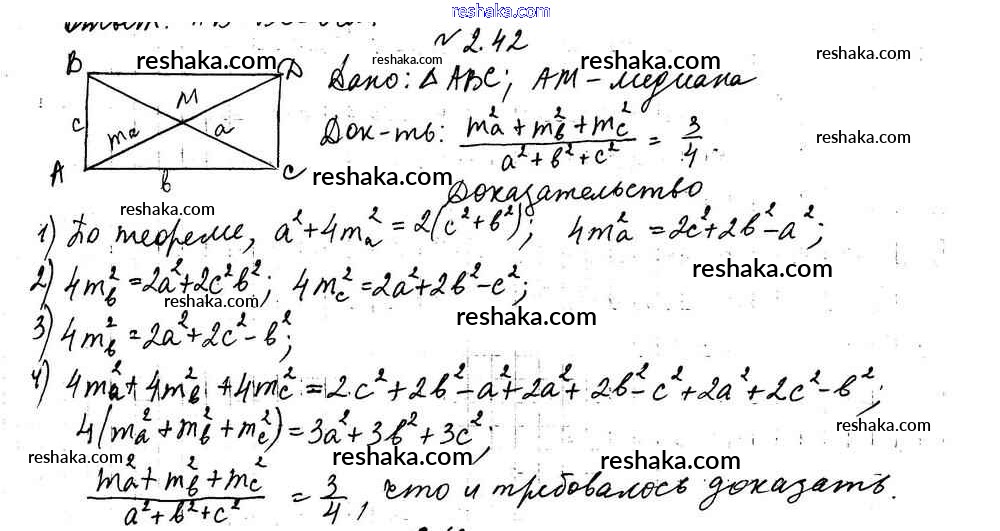 reshaka.com
№ 2.42
reshaka.com reshaka.com reshaka.com
B D Дано: △ABC; AM - медиана
M
c m_a a Док-ть: (m_a² + m_b² + m_c²)/(a² + b² + c²) = 3/4.
A b C reshaka.com reshaka.com
Доказательство
reshaka.com
1) По теореме, a² + 4m_a² = 2(c² + b²); 4m_a² = 2c² + 2b² - a²;
reshaka.com
2) 4m_b² = 2a² + 2c² b²; 4m_c² = 2a² + 2b² - c²;
reshaka.com
reshaka.com
3) 4m_b² = 2a² + 2c² - b²;
4) 4m_a² + 4m_b² + 4m_c² = 2c² + 2b² - a² + 2a² + 2b² - c² + 2a² + 2c² - b²;
reshaka.com
4(m_a² + m_b² + m_c²) = 3a² + 3b² + 3c²;
reshaka.com reshaka.com reshaka.com
(m_a² + m_b² + m_c²)/(a² + b² + c²) = 3/4, что и требовалось доказать.
reshaka.com reshaka.com